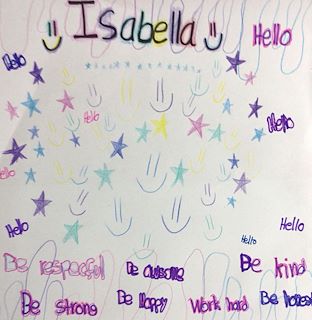 Isabella
Hello
Hello
Hello
Hello
Hello
Hello
Hello
Hello
Be respecful Be awsome Be kind
Be strong Be Happy Work hard Be honest